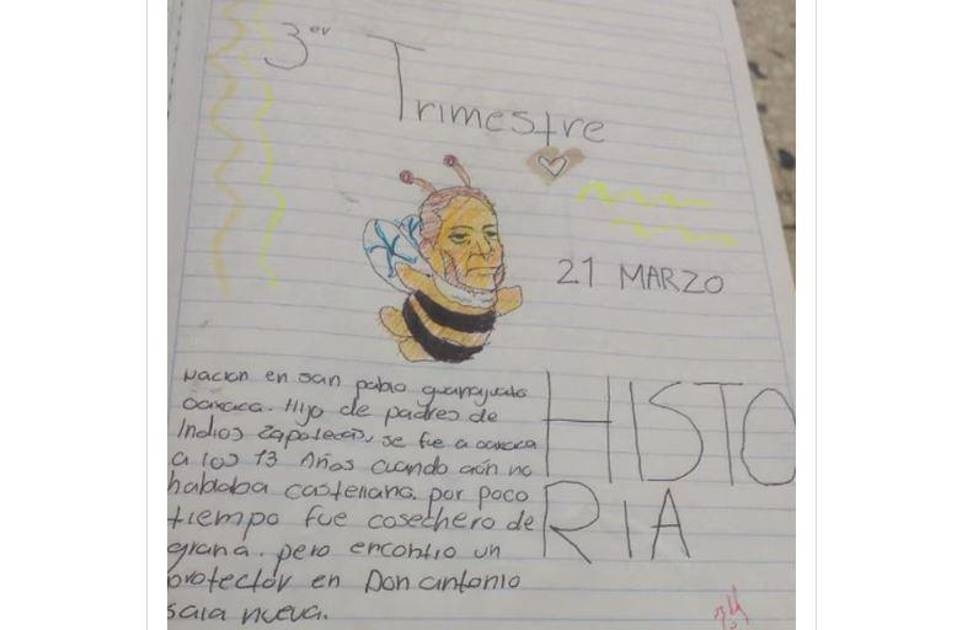 3er
Trimestre
21 MARZO
Nacion en san pablo guanajuato
oaxaca. Hijo de padres de
Indios zapotecas, se fue a oaxaca
a los 13 Años cuando aún no
hablaba castellano. por poco
tiempo fue cosechero de
grana. pero encontro un
protector en Don antonio
sala nueva.
HISTO
RIA